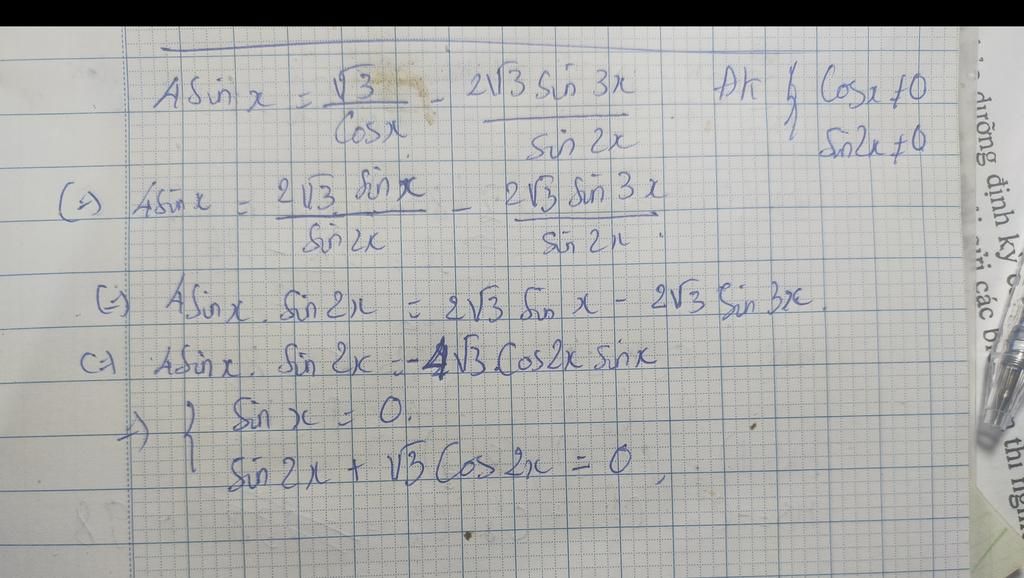 4 sin x = √3/cos x - 2√3 sin 3x/sin 2x ĐK { cos x ≠ 0
sin 2x ≠ 0
(=) 4 sin x = 2√3 sin x/sin 2x - 2√3 sin 3x/sin 2x.
(=) 4 sin x . sin 2x = 2√3 sin x - 2√3 sin 3x.
(=) 4 sin x . sin 2x = -4√3 cos 2x sin x
=) { sin x = 0.
sin 2x + √3 cos 2x = 0,
dưỡng định kỳ
các
thi